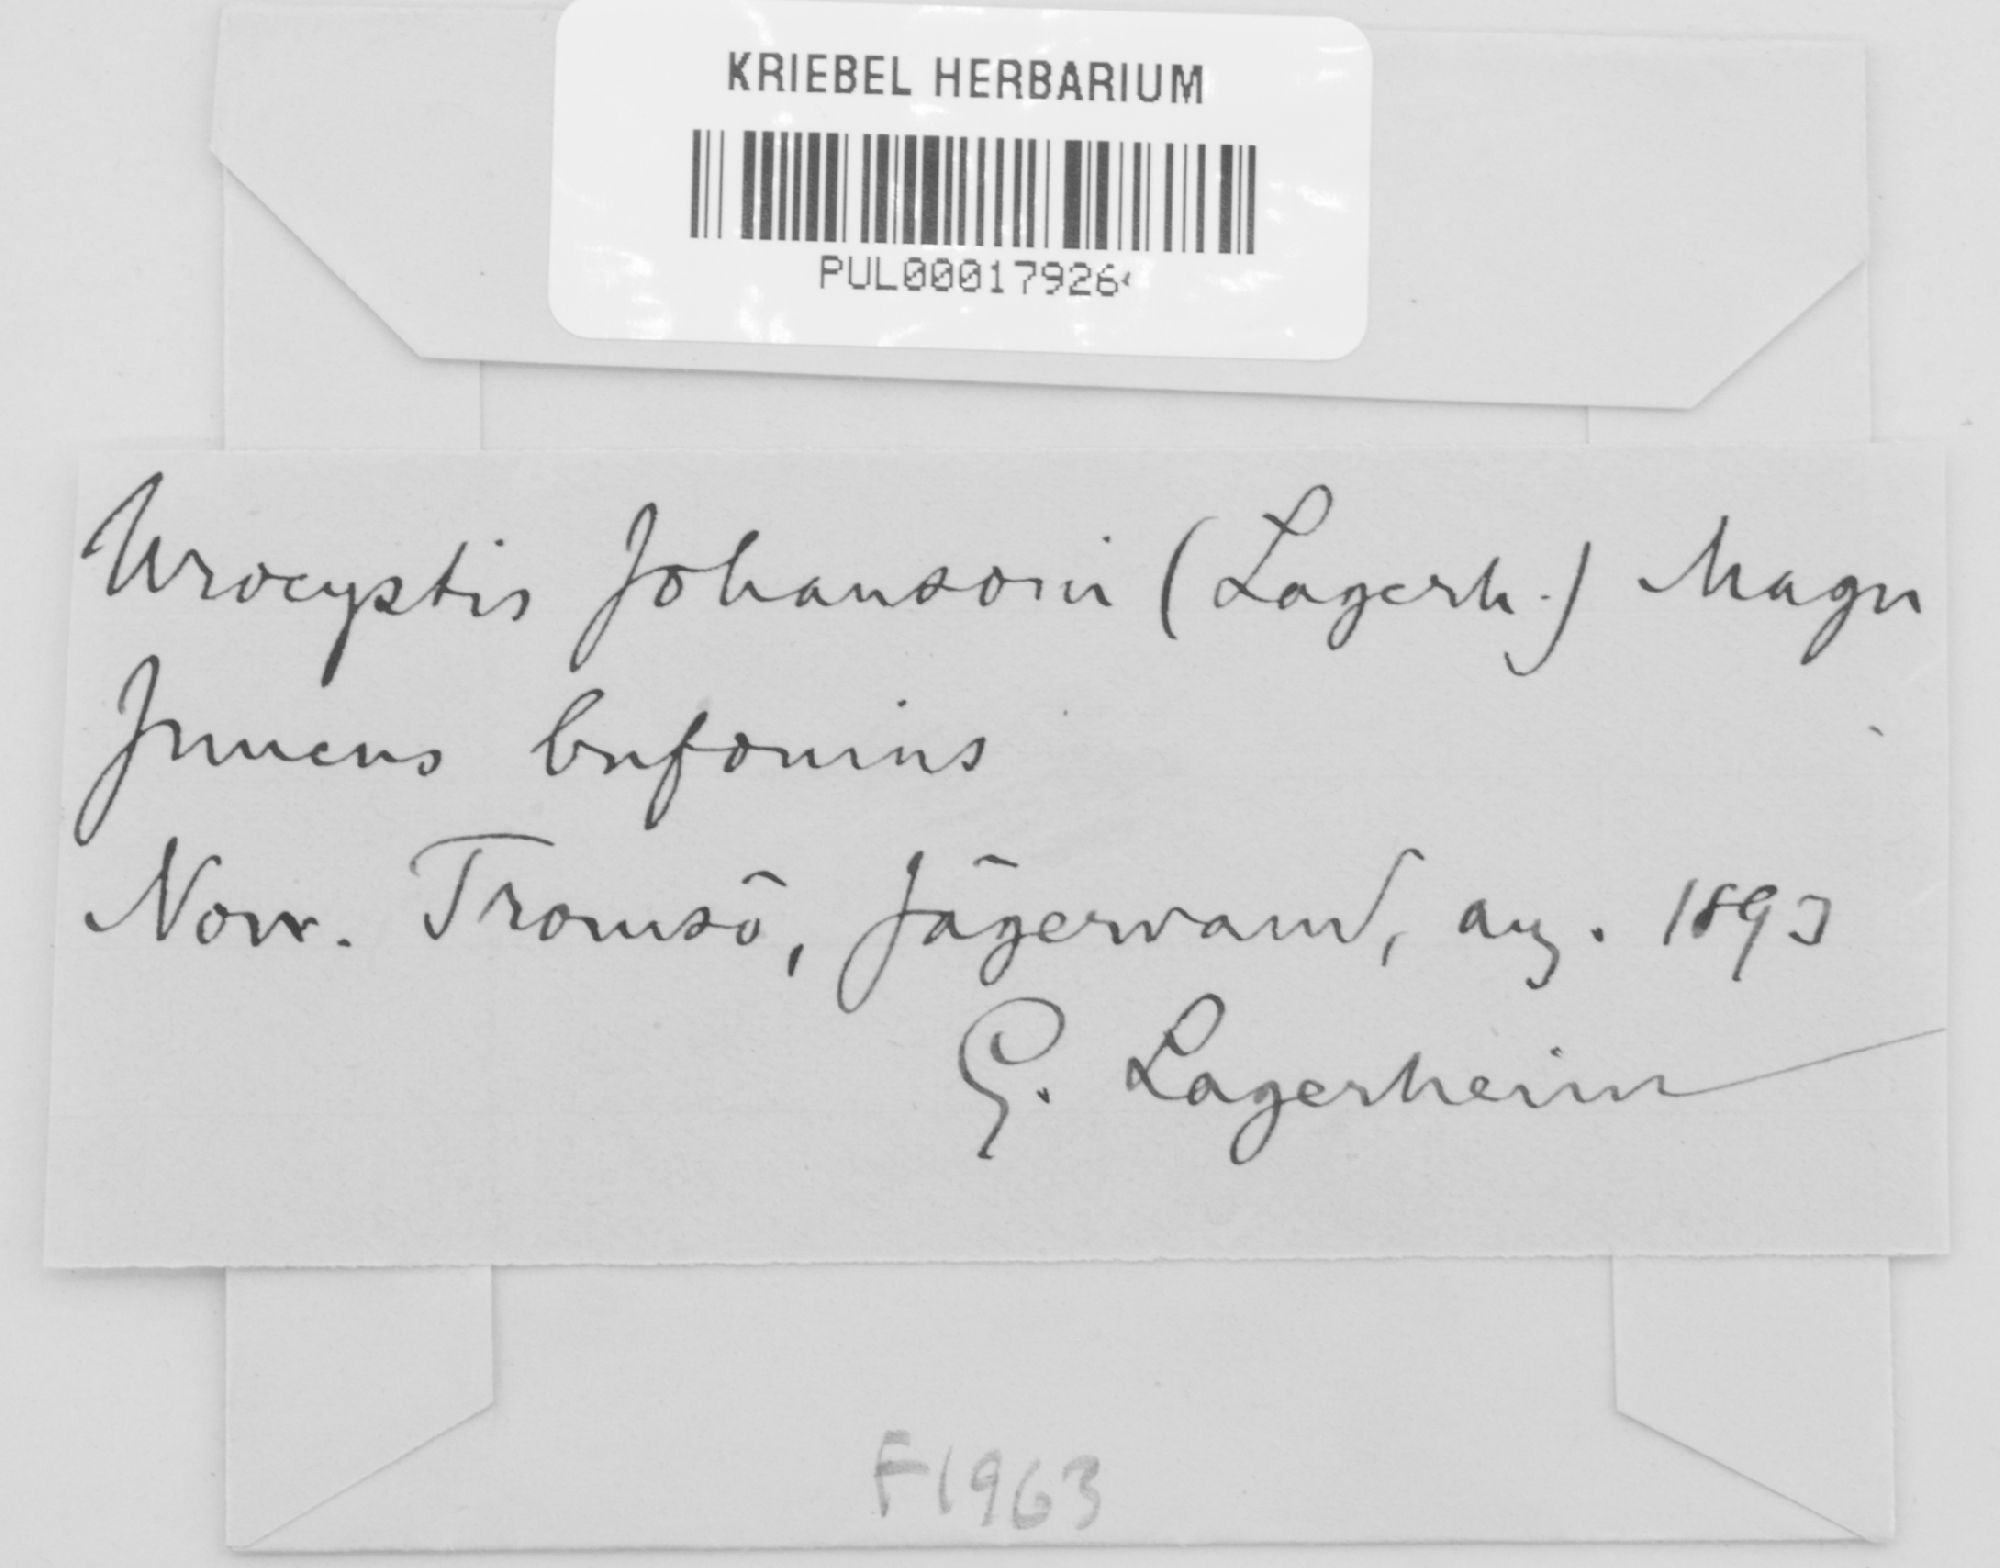 KRIEBEL HERBARIUM
PUL00017926
Urocystis Johansoni (Lagerh.) Magn
Juncus bufonius
Norv. Tromsö, Jägervand, aug. 1893
G. Lagerheim
F1963